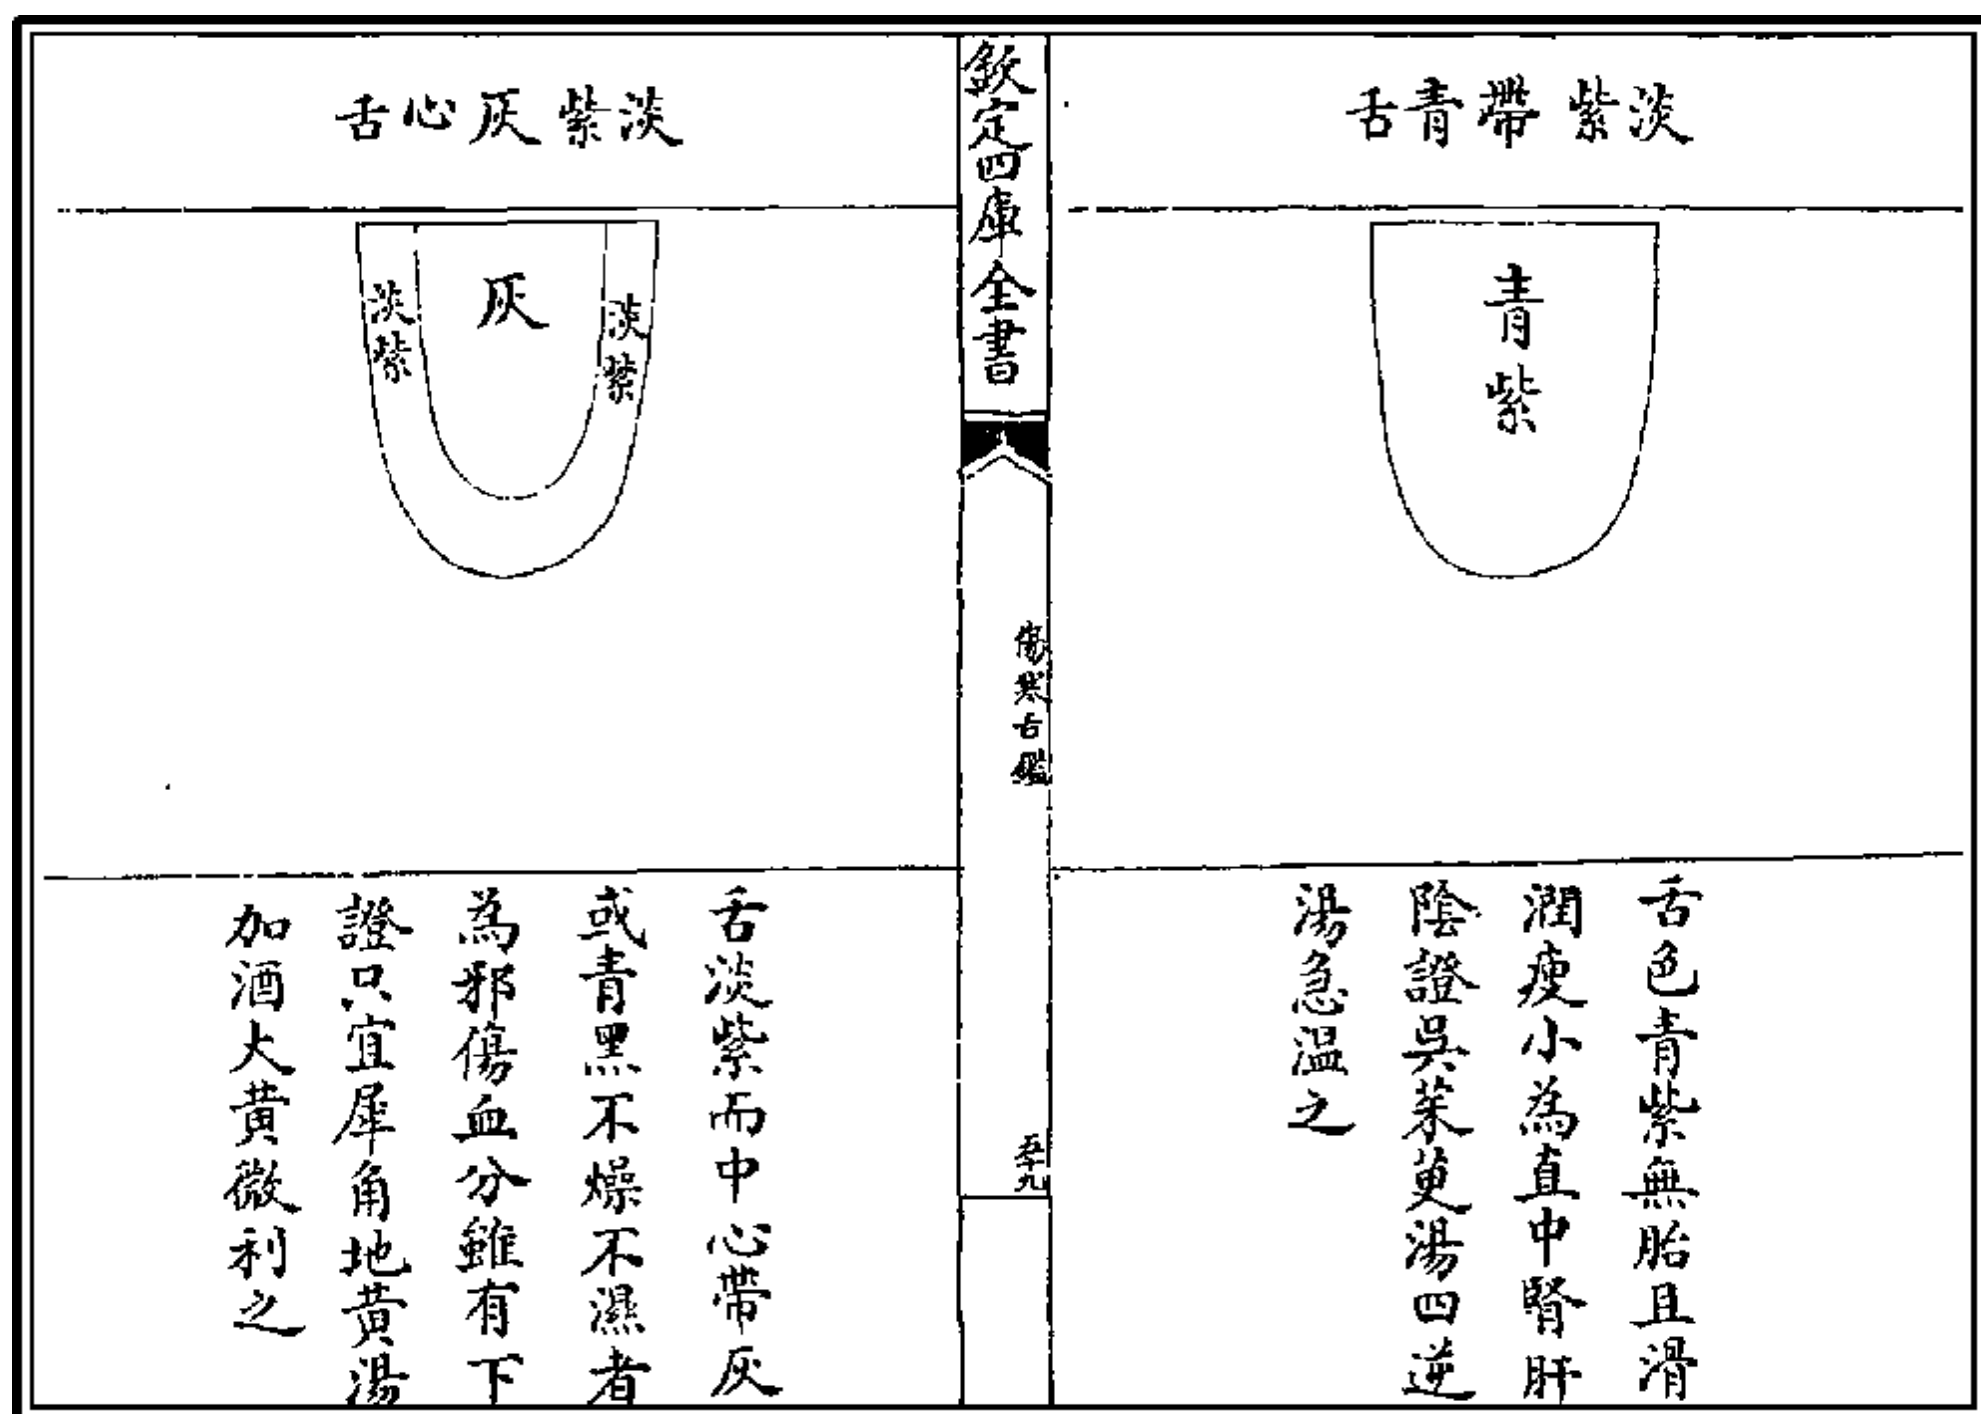 淡紫帶青舌
青紫
舌色青紫無胎且滑
潤瘦小為直中腎肝
陰證吳茱萸湯四逆
湯急溫之
欽定四庫全書
傷寒舌鑑
五十九
淡紫灰心舌
淡紫
灰
淡紫
舌淡紫而中心帶灰
或青黑不燥不濕者
為邪傷血分雖有下
證只宜犀角地黃湯
加酒大黃微利之